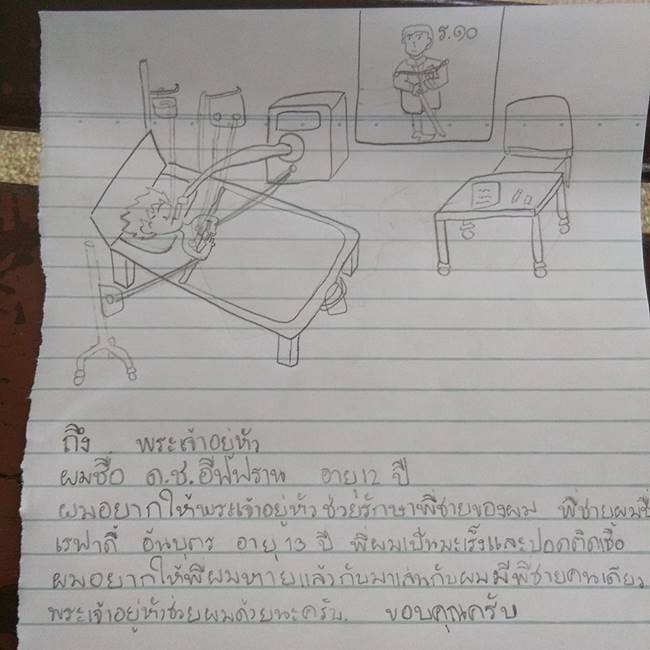 ร.๑๐
ถึง พระเจ้าอยู่หัว
ผมชื่อ ด.ช.อีฟฟราน อายุ 12 ปี
ผมอยากให้พระเจ้าอยู่หัวช่วยรักษาพี่ชายของผม พี่ชายผมชื่
เรฟาดี้ อันบุตร อายุ 13 ปี พี่ผมเป็นมะเร็งและปอดติดเชื้อ
ผมอยากให้พี่ผมหายแล้วกับมาเล่นกับผมมีพี่ชายคนเดียว
พระเจ้าอยู่หัวช่วยผมด้วยนะครับ. ขอบคุณครับ